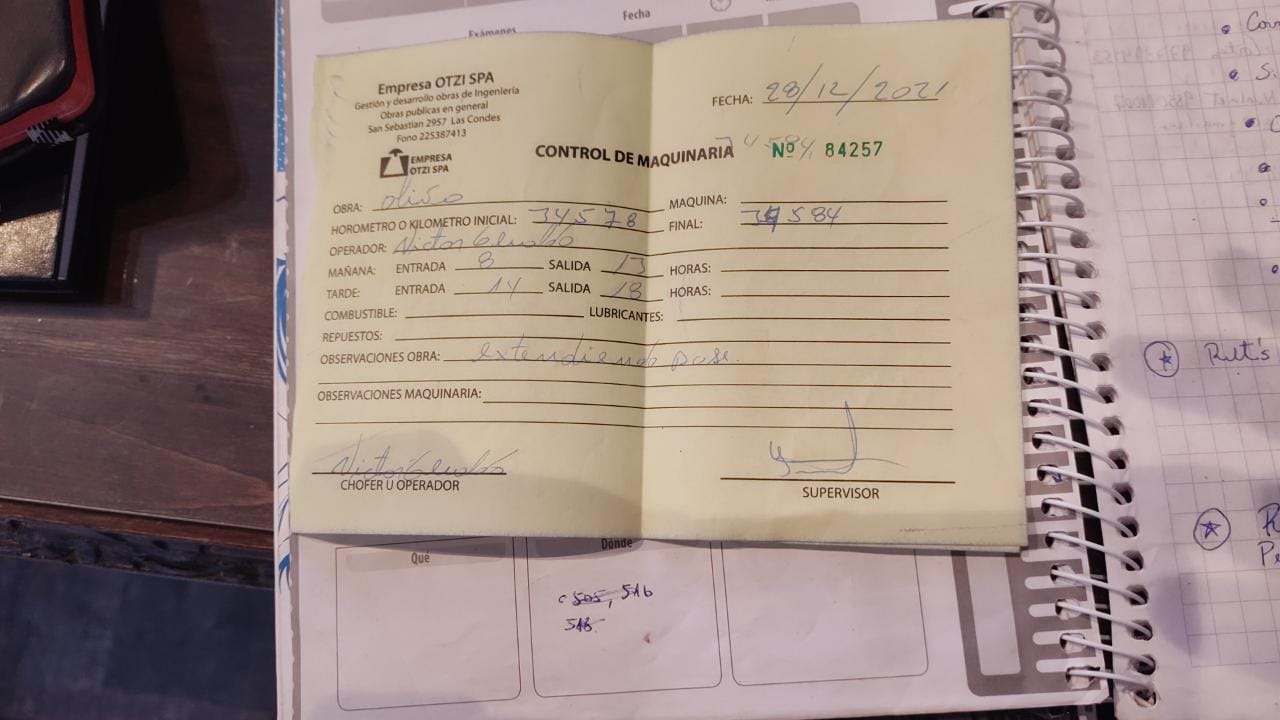 Exámenes
Fecha
Empresa OTZI SPA
Gestión y desarrollo obras de Ingeniería
Obras publicas en general
San Sebastian 2957 Las Condes
Fono 225387413
EMPRESA
OTZI SPA
FECHA: 28/12/2021
CONTROL DE MAQUINARIA Nº 84257
OBRA: MAQUINA:
HOROMETRO O KILOMETRO INICIAL: 34578 FINAL: 34584
OPERADOR: Victor
MAÑANA: ENTRADA 8 SALIDA 13 HORAS:
TARDE: ENTRADA 14 SALIDA 18 HORAS:
COMBUSTIBLE: LUBRICANTES:
REPUESTOS:
OBSERVACIONES OBRA: extendiendo base.
OBSERVACIONES MAQUINARIA:
Victor
CHOFER U OPERADOR
SUPERVISOR
Qué
Dónde
505, 516
516
Rut's